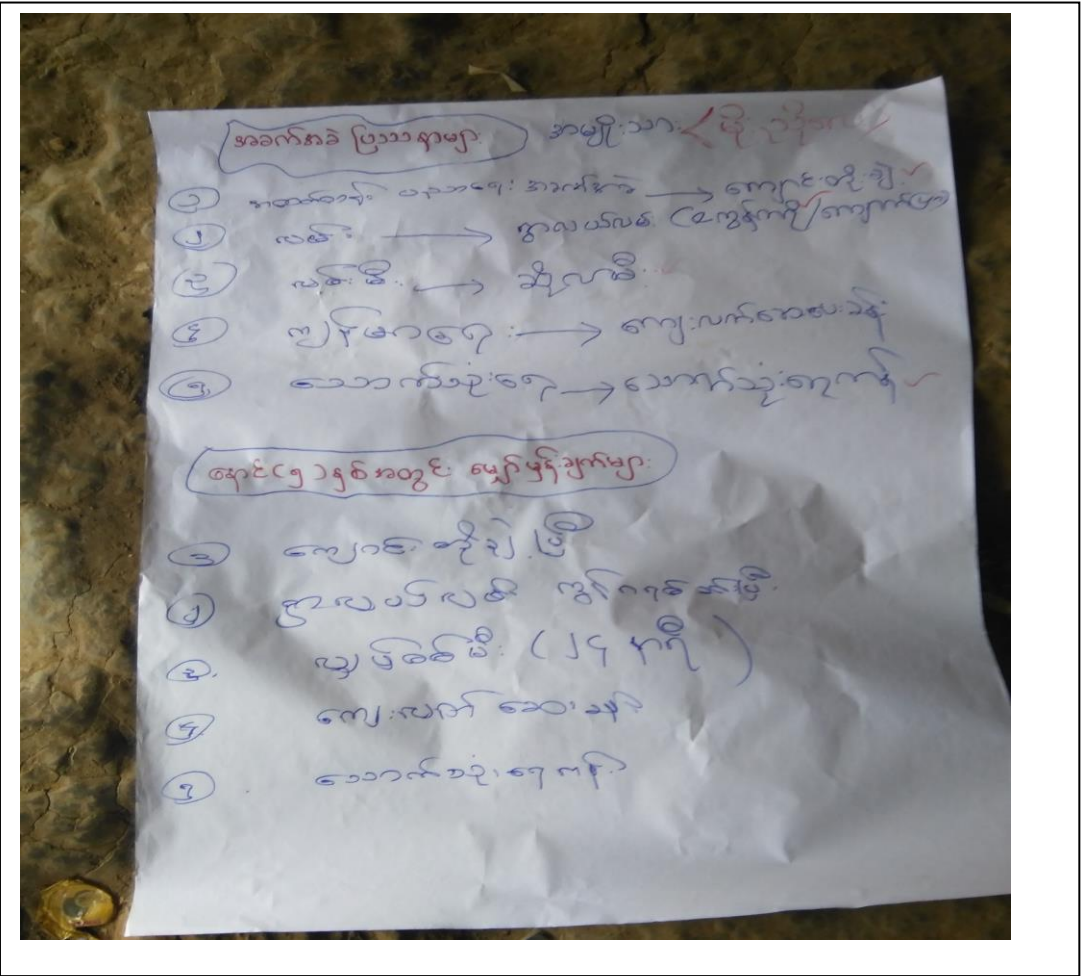 အခက်အခဲ ပြဿနာများ အမျိုးသား
၁ အဆင့် ပညာရေး အခက်အခဲ → ကျောင်းတိုးချဲ့
၂ လမ်း → ရွာလယ်လမ်း (ကွန်ကရိ/ကျောက်
၃ လမ်းမီး → ဆိုလာမီး
၄ ကျန်းမာရေး → ကျေးလက်ဆေးပေးခန်း
၅ သောက်သုံးရေ → သောက်သုံးရေကန်
နောင်(၅)နှစ်အတွင်း မျှော်မှန်းချက်များ
၁ ကျောင်းတိုးချဲ့ပြီး
၂ ရွာလယ်လမ်း
၃ လျှပ်စစ်မီး (၂၄ နာရီ)
၄ ကျေးလက် ဆေးခန်း
၅ သောက်သုံးရေကန်